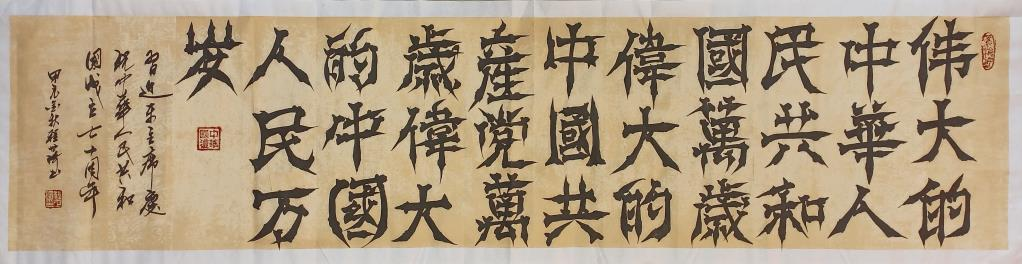 伟大的
中華人
民共和
國萬歲
偉大的
中國共
産党萬
歲偉大
的中國
人民万
岁
習近平主席慶
祝中華人民共和
國成立七十周年
金秋